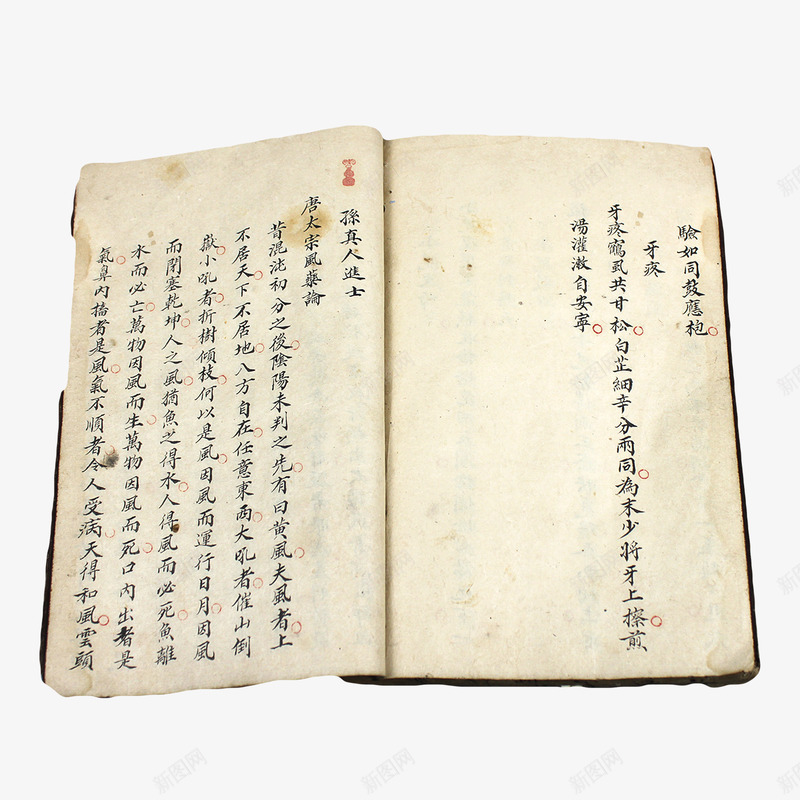 驗如同鼓應枹
牙疼
牙疼鶴虱共甘松白芷細辛分兩同為末少將牙上擦煎
湯灌漱自安寧
孫真人進士
唐太宗風藥論
昔混沌初分之後陰陽未判之先有曰黄風夫風者上
不居天下不居地八方自在任意東西大吼者催山倒
嶽小吼者折樹傾枝何以是風因風而運行日月因風
而開塞乾坤人之風猶魚之得水人得風而必死魚離
水而必亡萬物因風而生萬物因風而死口内出者是
氣鼻内擒者是風氣不順者令人受病天得和風雲頭
新图网